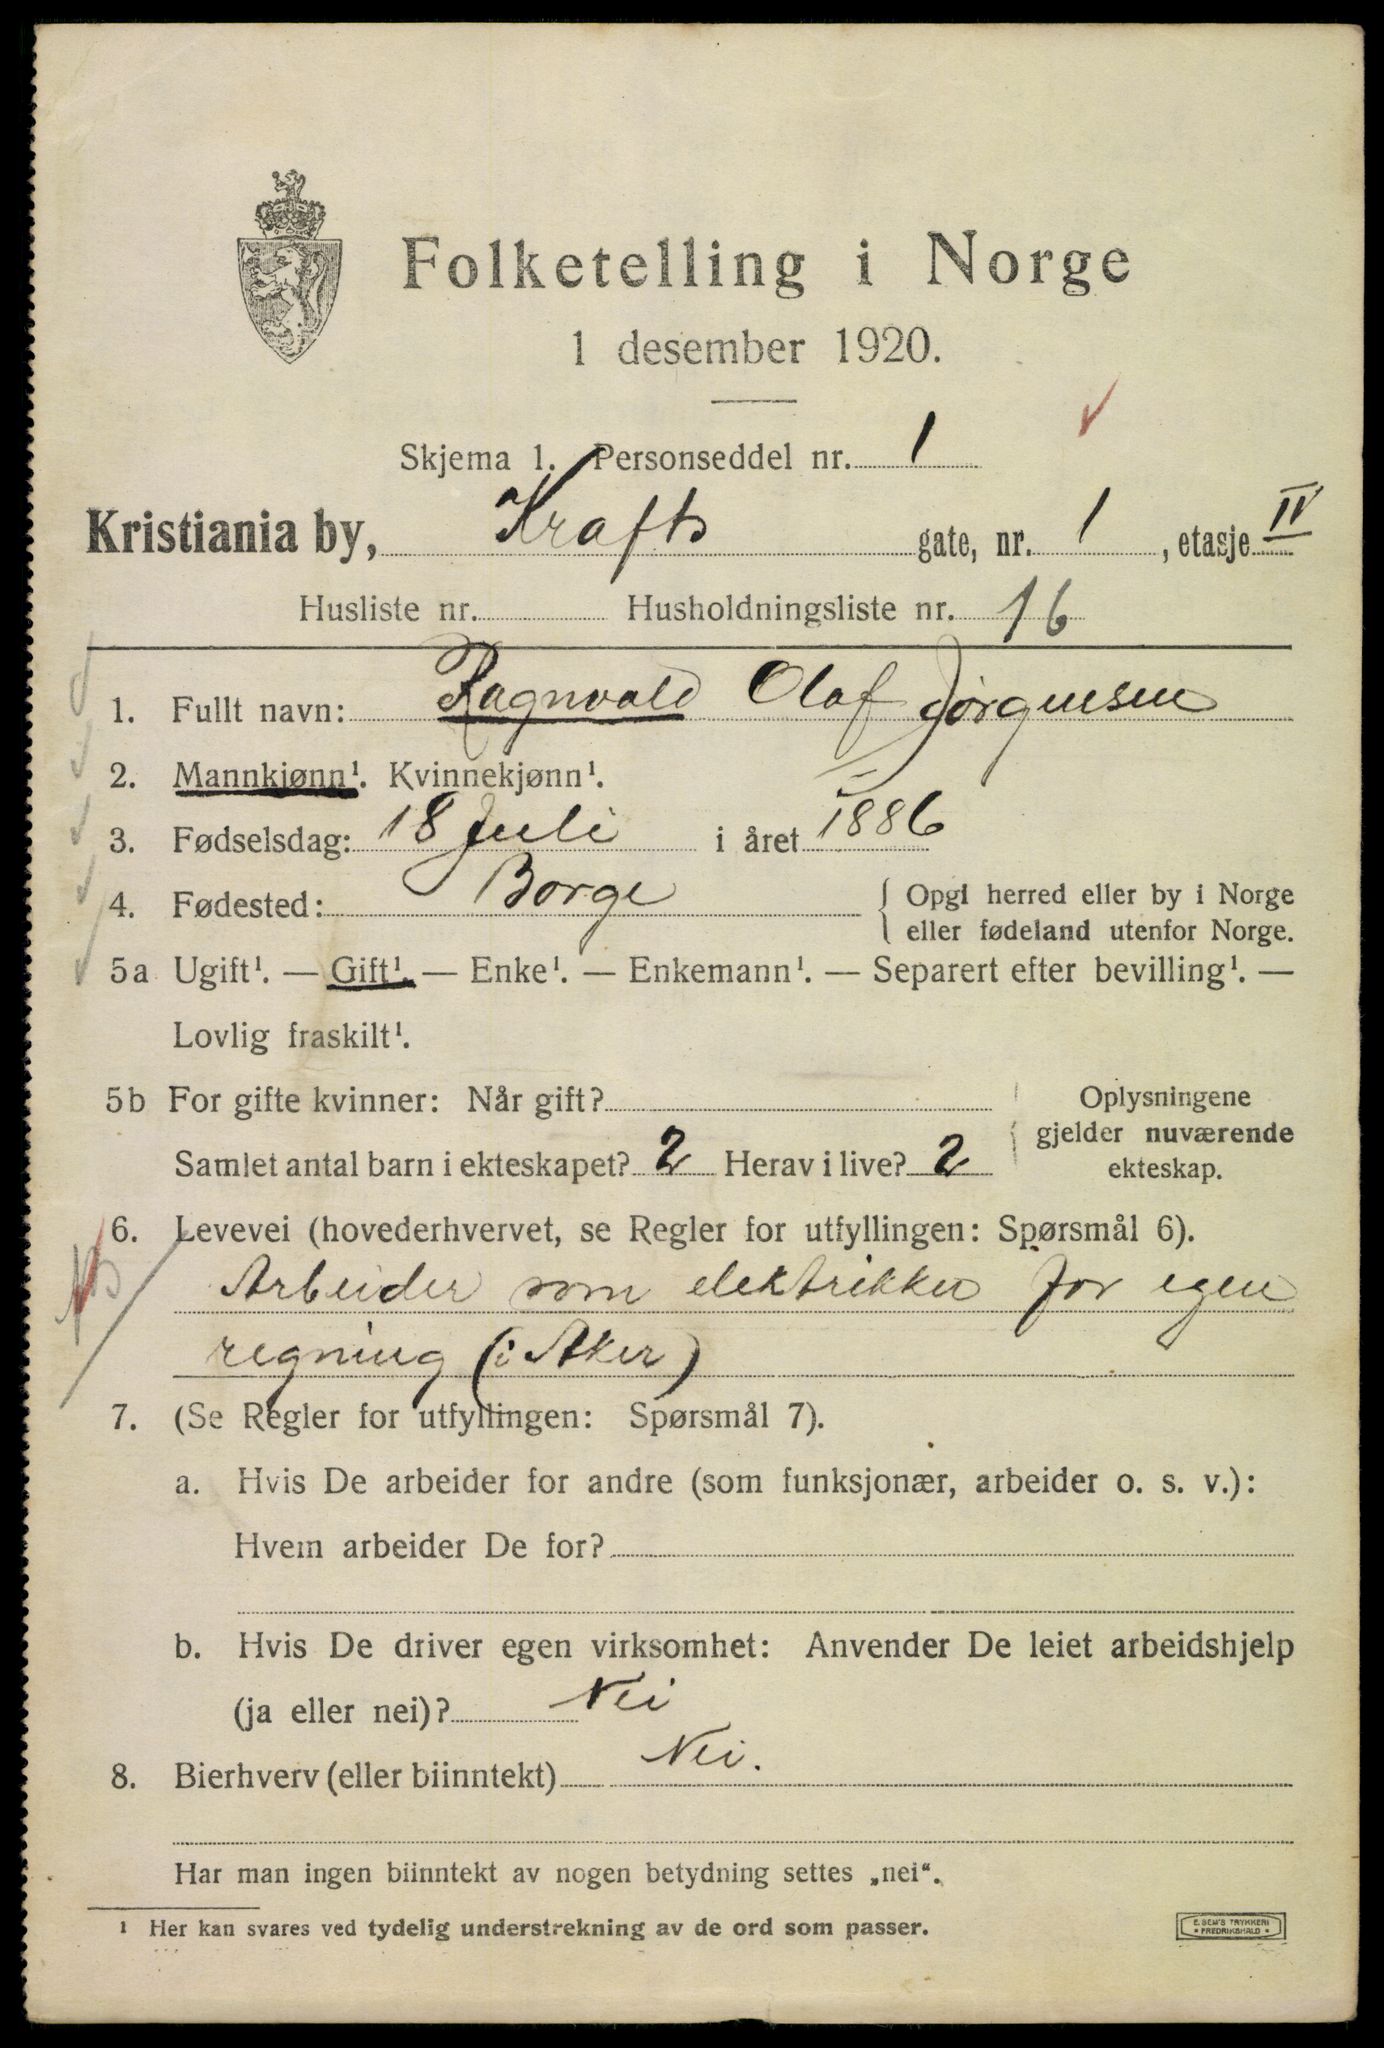 Folketelling i Norge
1 desember 1920.
Skjema 1. Personseddel nr. 1
Kristiania by, Krafts gate, nr. 1, etasje IV
Husliste nr. Husholdningsliste nr. 16
1. Fullt navn: Ragnvald Olaf Jørgensen
2. Mannkjønn¹. Kvinnekjønn¹.
3. Fødselsdag: 18 Juli i året 1886
4. Fødested: Borge { Opgi herred eller by i Norge
eller fødeland utenfor Norge.
5a Ugift¹. — Gift¹. — Enke¹. — Enkemann¹. — Separert efter bevilling¹. —
Lovlig fraskilt¹.
5b For gifte kvinner: Når gift? Oplysningene
gjelder nuværende
Samlet antal barn i ekteskapet? 2 Herav i live? 2 ekteskap.
6. Levevei (hovederhvervet, se Regler for utfyllingen: Spørsmål 6).
Arbeider som elektrikker for egen
regning (i Aker)
7. (Se Regler for utfyllingen: Spørsmål 7).
a. Hvis De arbeider for andre (som funksjonær, arbeider o. s. v.):
Hvem arbeider De for?
b. Hvis De driver egen virksomhet: Anvender De leiet arbeidshjelp
(ja eller nei)? Nei
8. Bierhverv (eller biinntekt) Nei.
Har man ingen biinntekt av nogen betydning settes „nei“.
¹ Her kan svares ved tydelig understrekning av de ord som passer.
E. SEM'S TRYKKERI
FREDRIKSHALD